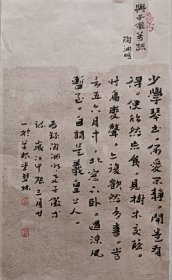 與子儼等疏
陶淵明
少學琴書偶愛閒靜開卷有
得便欣然忘食見樹木交蔭
時鳥變聲亦復歡然有喜常
言五六月中北窗下臥遇涼風
暫至自謂是羲皇上人
錄陶淵明與子儼等
疏歲次甲辰三月廿
一於